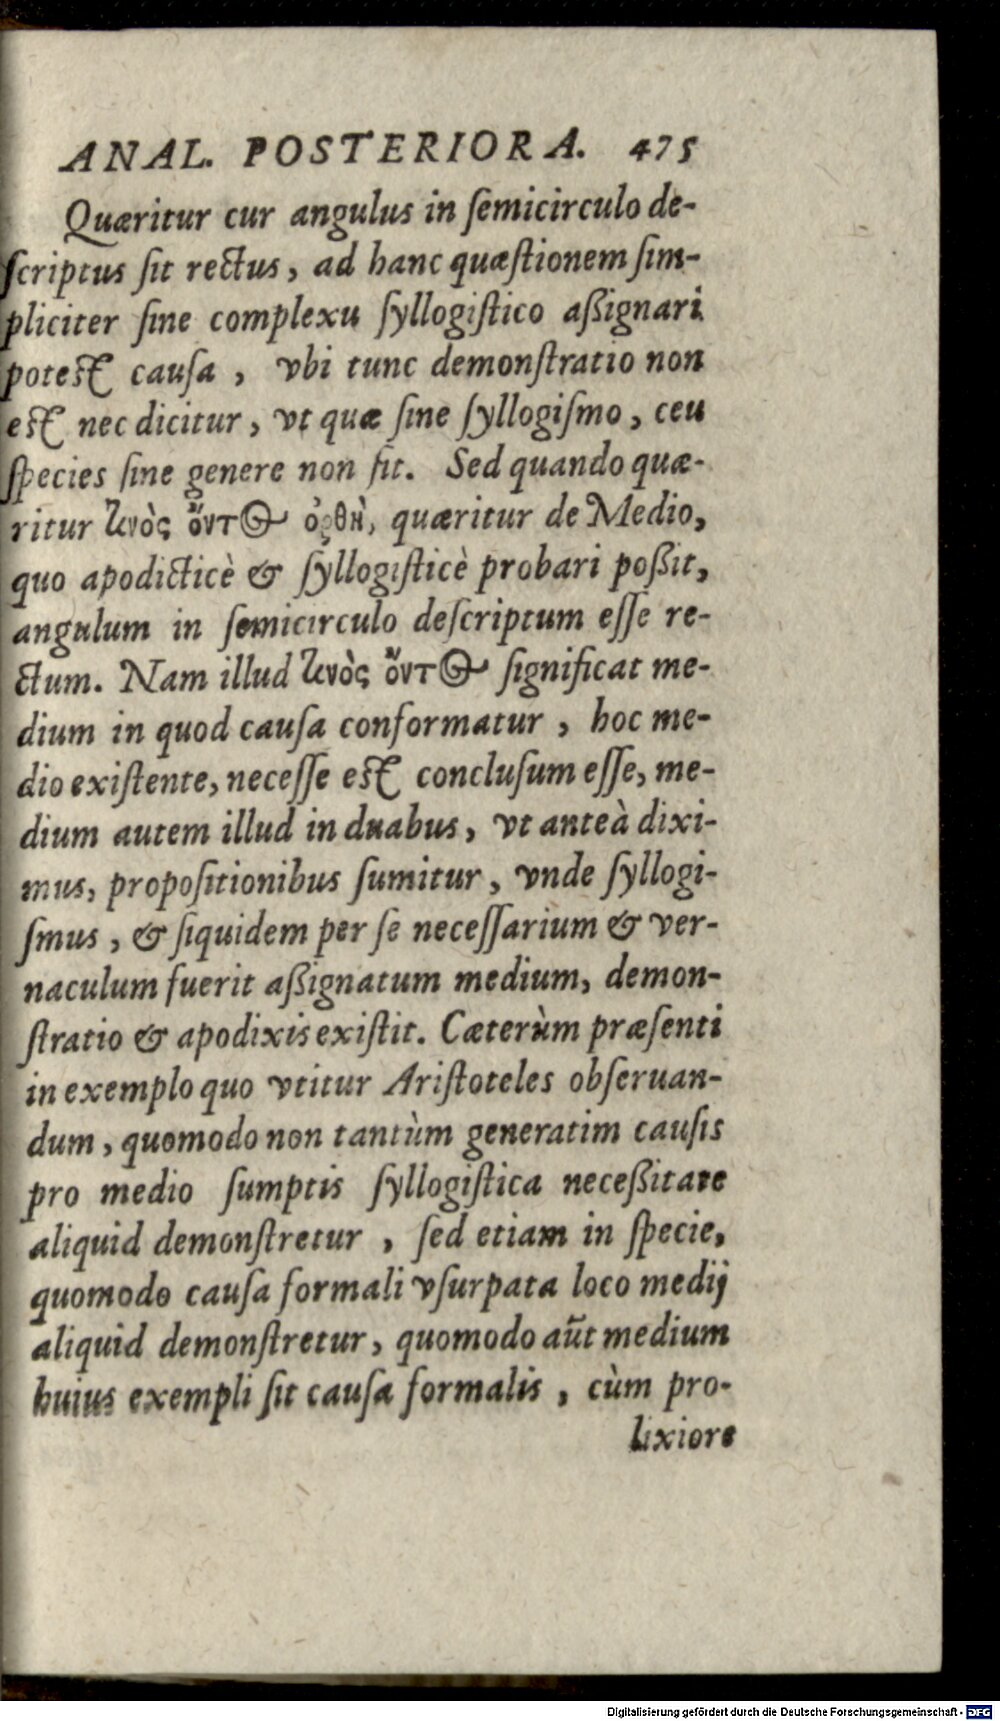 ANAL. POSTERIORA. 475
Quæritur cur angulus in ſemicirculo de-
ſcriptus ſit rectus, ad hanc quæſtionem ſim-
pliciter ſine complexu ſyllogiſtico aßignari
poteſt cauſa, vbi tunc demonſtratio non
eſt nec dicitur, vt quæ ſine ſyllogiſmo, ceu
ſpecies ſine genere non fit. Sed quando quæ-
ritur τινὸς ὄντος ὀρθὴ, quæritur de Medio,
quo apodicticè & ſyllogiſticè probari poßit,
angulum in ſemicirculo deſcriptum eſſe re-
ctum. Nam illud τινὸς ὄντος ſignificat me-
dium in quod cauſa conformatur, hoc me-
dio exiſtente, neceſſe eſt concluſum eſſe, me-
dium autem illud in duabus, vt anteà dixi-
mus, propoſitionibus ſumitur, vnde ſyllogi-
ſmus, & ſiquidem per ſe neceſſarium & ver-
naculum fuerit aßignatum medium, demon-
ſtratio & apodixis exiſtit. Cæterùm præſenti
in exemplo quo vtitur Ariſtoteles obſeruan-
dum, quomodo non tantùm generatim cauſis
pro medio ſumptis ſyllogiſtica neceßitate
aliquid demonſtretur, ſed etiam in ſpecie,
quomodo cauſa formali vſurpata loco medij
aliquid demonſtretur, quomodo aũt medium
huius exempli ſit cauſa formalis, cùm pro-
lixiore
Digitalisierung gefördert durch die Deutsche Forschungsgemeinschaft - DFG